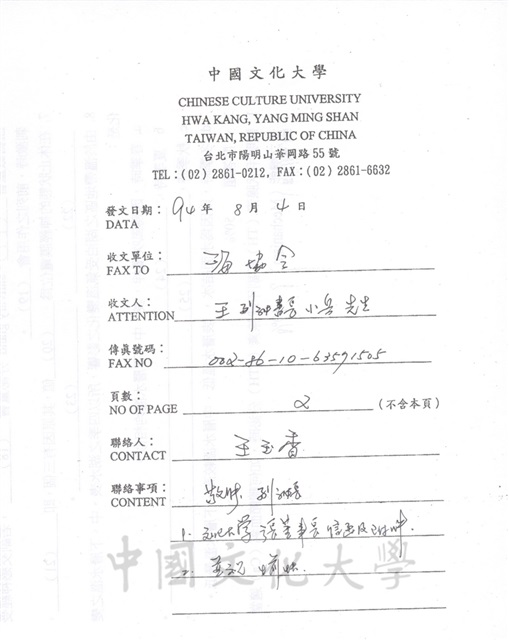 中國文化大學
CHINESE CULTURE UNIVERSITY
HWA KANG, YANG MING SHAN
TAIWAN, REPUBLIC OF CHINA
台北市陽明山華岡路 55 號
TEL：(02) 2861-0212, FAX：(02) 2861-6632
發文日期： 94 年 8 月 4 日
DATA
收文單位： 海協會
FAX TO
收文人： 王 小兵 先生
ATTENTION
傳真號碼： 002-86-10-63591505
FAX NO
頁數： 2 (不含本頁)
NO OF PAGE
聯絡人： 王玉香
CONTACT
聯絡事項：
CONTENT
1. 文化大學 張董事長
2.
中國文化大學